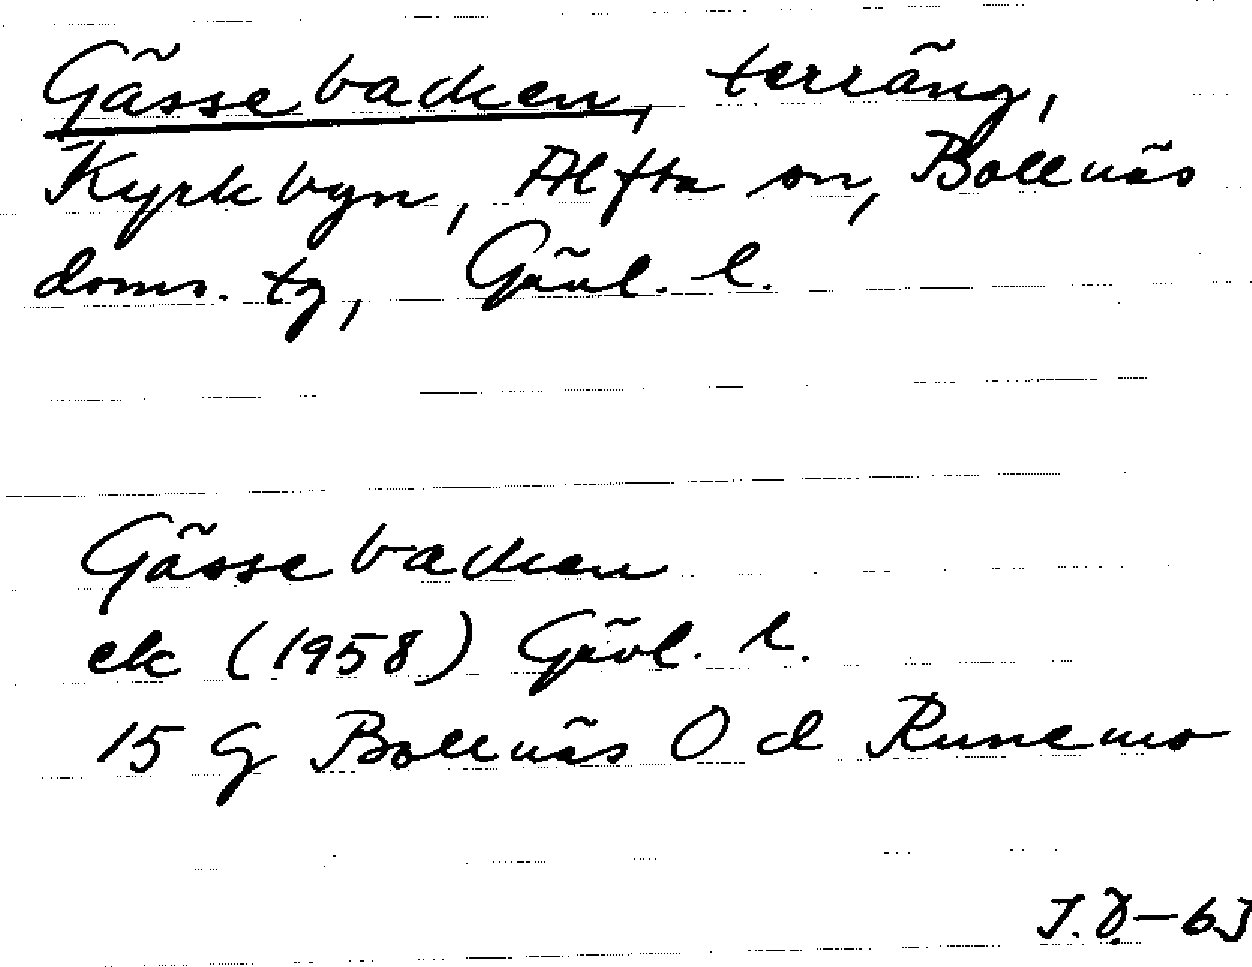 Gässebacken, terräng,
Kyrkbyn, Alfta sn, Bollnäs
doms. tg, Gävl. l.
Gässebacken
ek (1958) Gävl. l.
15 G Bollnäs O d Runemo